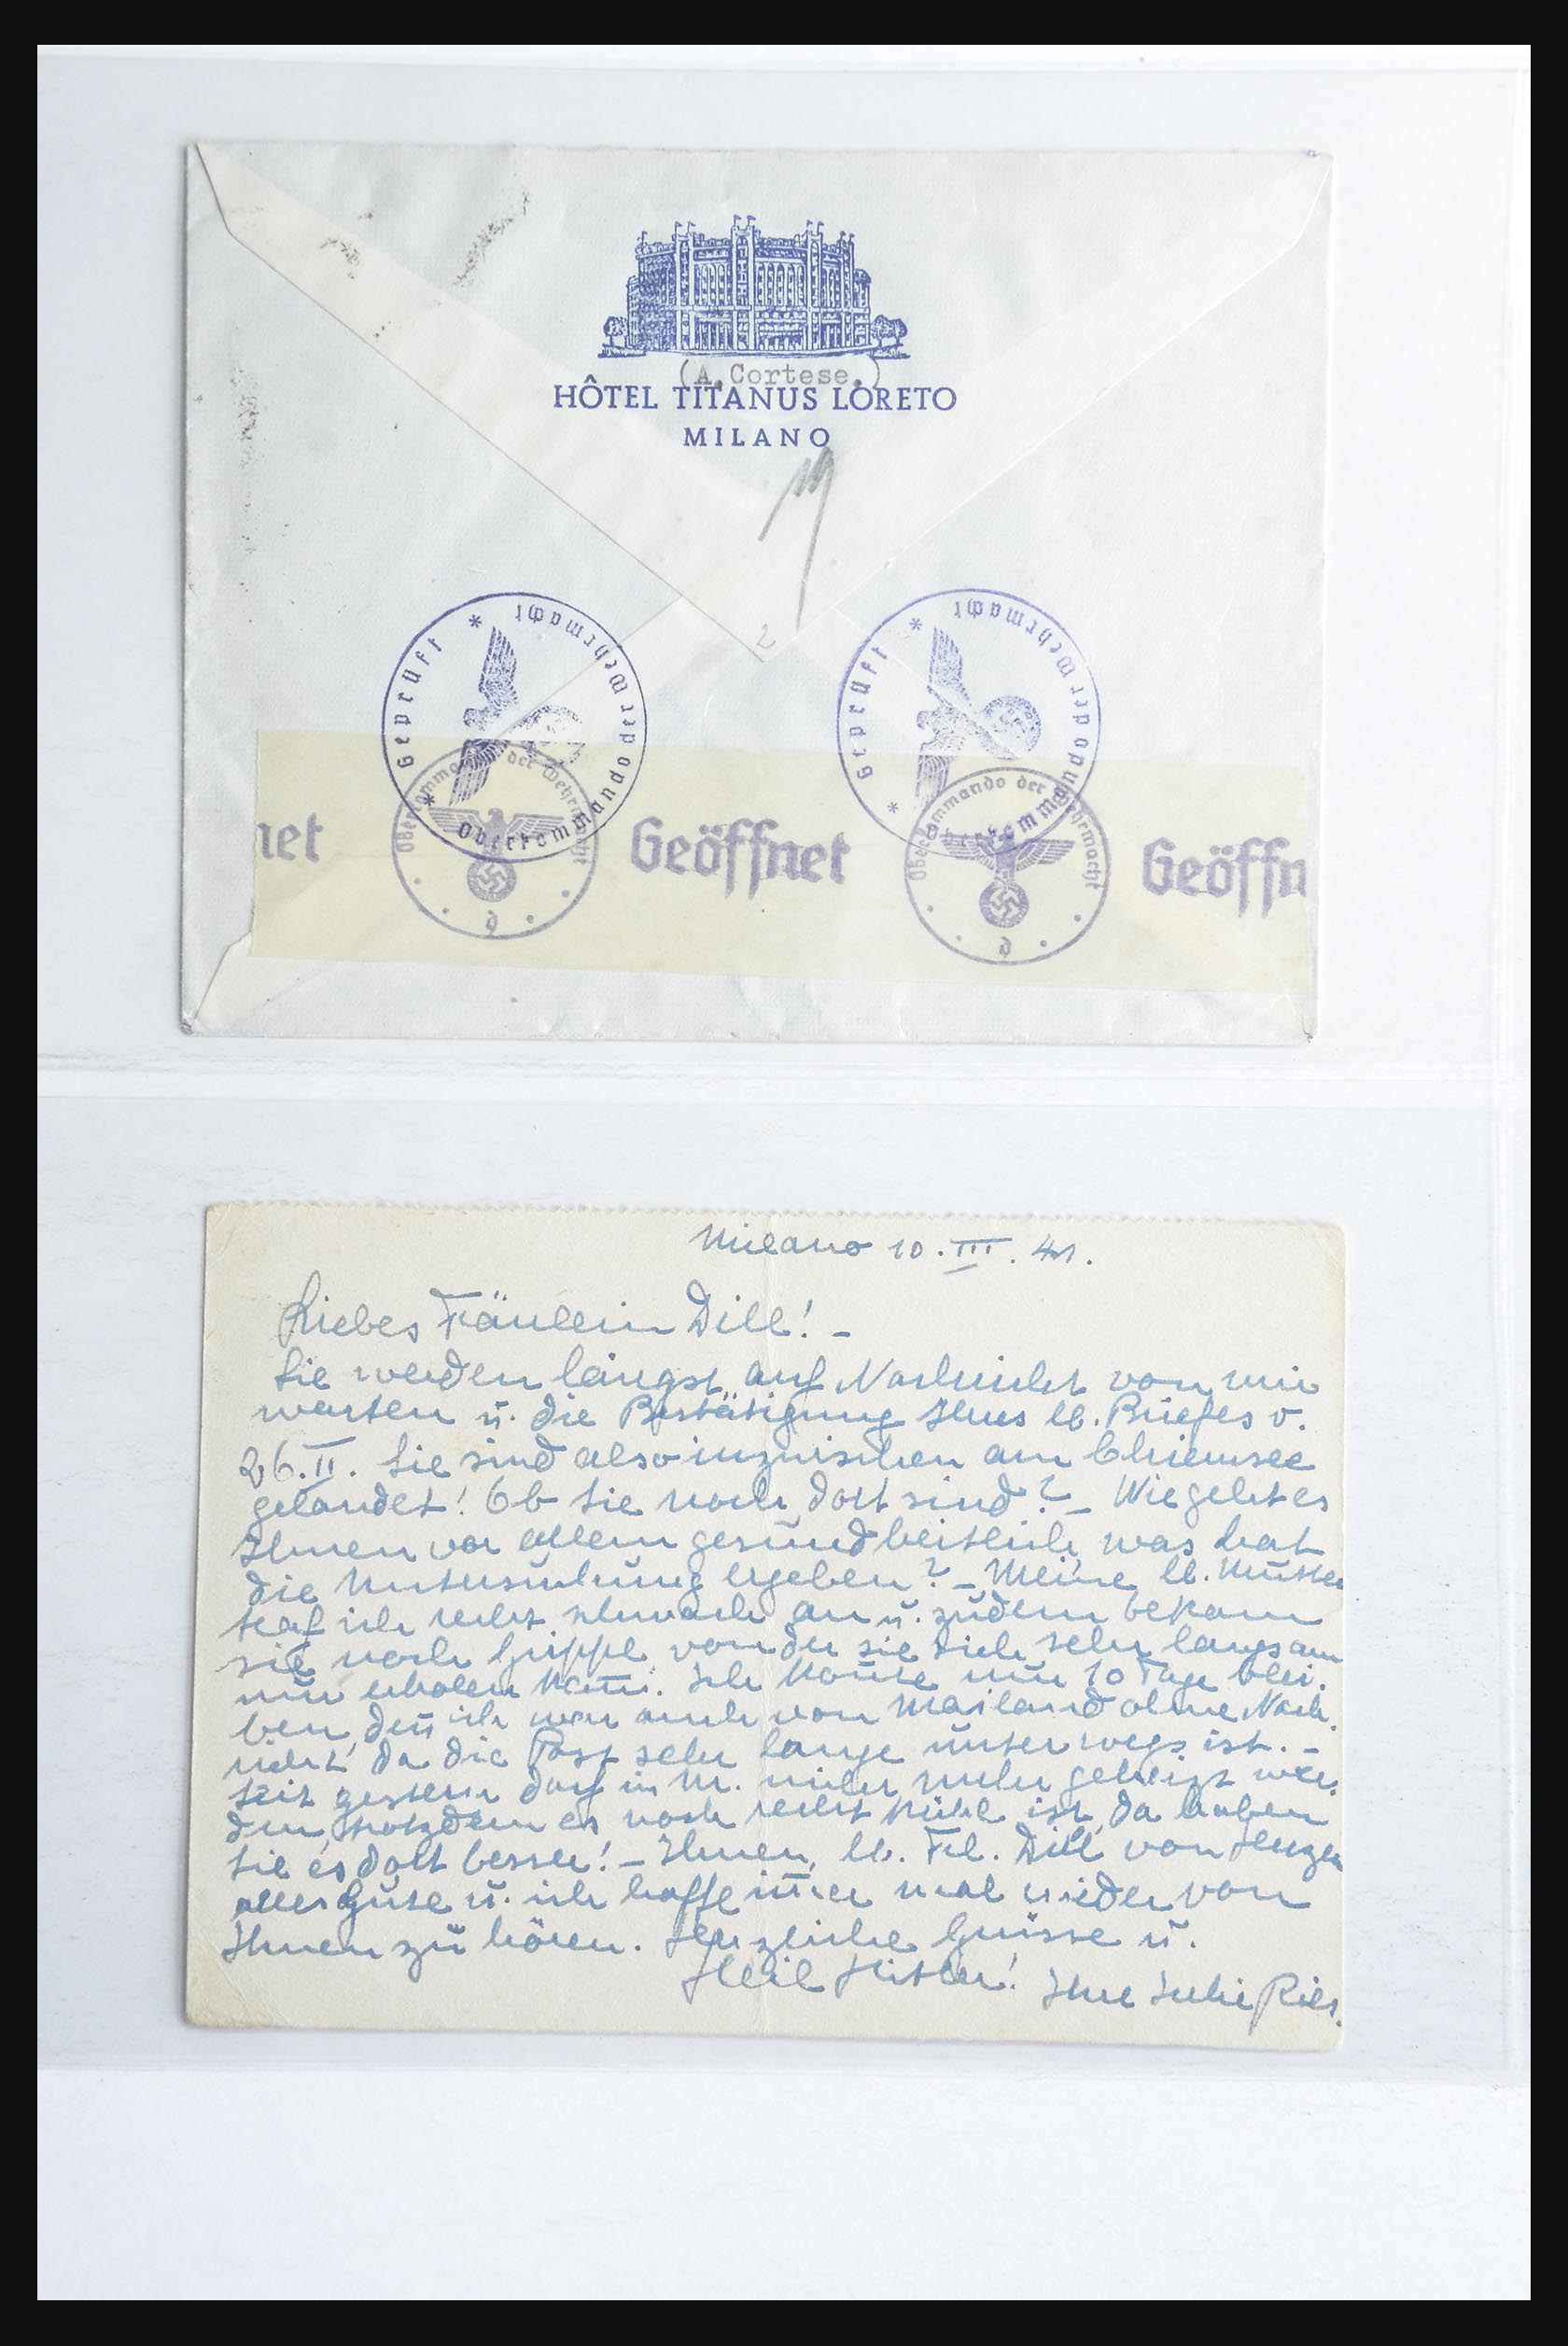 (A.Cortese.)
HÔTEL TITANUS LORETO
MILANO
2
* Geprüft * Oberkommando der Wehrmacht
* Geprüft * Oberkommando der Wehrmacht
net
Oberkommando der Wehrmacht
d
Geöffnet
Oberkommando der Wehrmacht
d
Geöffn
Milano 10.III.41.
Liebes Fräulein Dill! -
Sie werden längst auf Nachricht von mir
warten u. die Bestätigung Ihres lb. Briefes v.
26.II. Sie sind also inzwischen am Chiemsee
gelandet! Ob Sie noch dort sind? - Wie geht es
Ihnen vor allem gesundheitlich, was hat
die Untersuchung ergeben? - Meine lb. Mutter
traf ich recht schwach an u. zudem bekam
sie noch Grippe, von der sie sich sehr langsam
nur erholen kann. Ich konnte nur 10 Tage blei-
ben, denn ich war auch von Mailand ohne Nach-
richt, da die Post sehr lange unterwegs ist. -
Seit gestern darf in M. nicht mehr geheizt wer-
den, trotzdem es noch recht kühl ist, da haben
Sie es dort besser! - Ihnen, lb. Frl. Dill von Herzen
alles Gute u. ich hoffe immer mal wieder von
Ihnen zu hören. Herzliche Grüsse u.
Heil Hitler! Ihre Julie Ries.